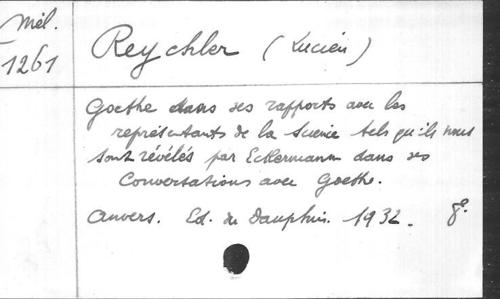 Mél.
1261
Reychler (Lucien)
Goethe dans ses rapports avec les
représentants de la Science tels qu'ils nous
sont révélés par Eckermann dans ses
Conversations avec Goethe.
Anvers. Ed. du Dauphin. 1932. 8°.